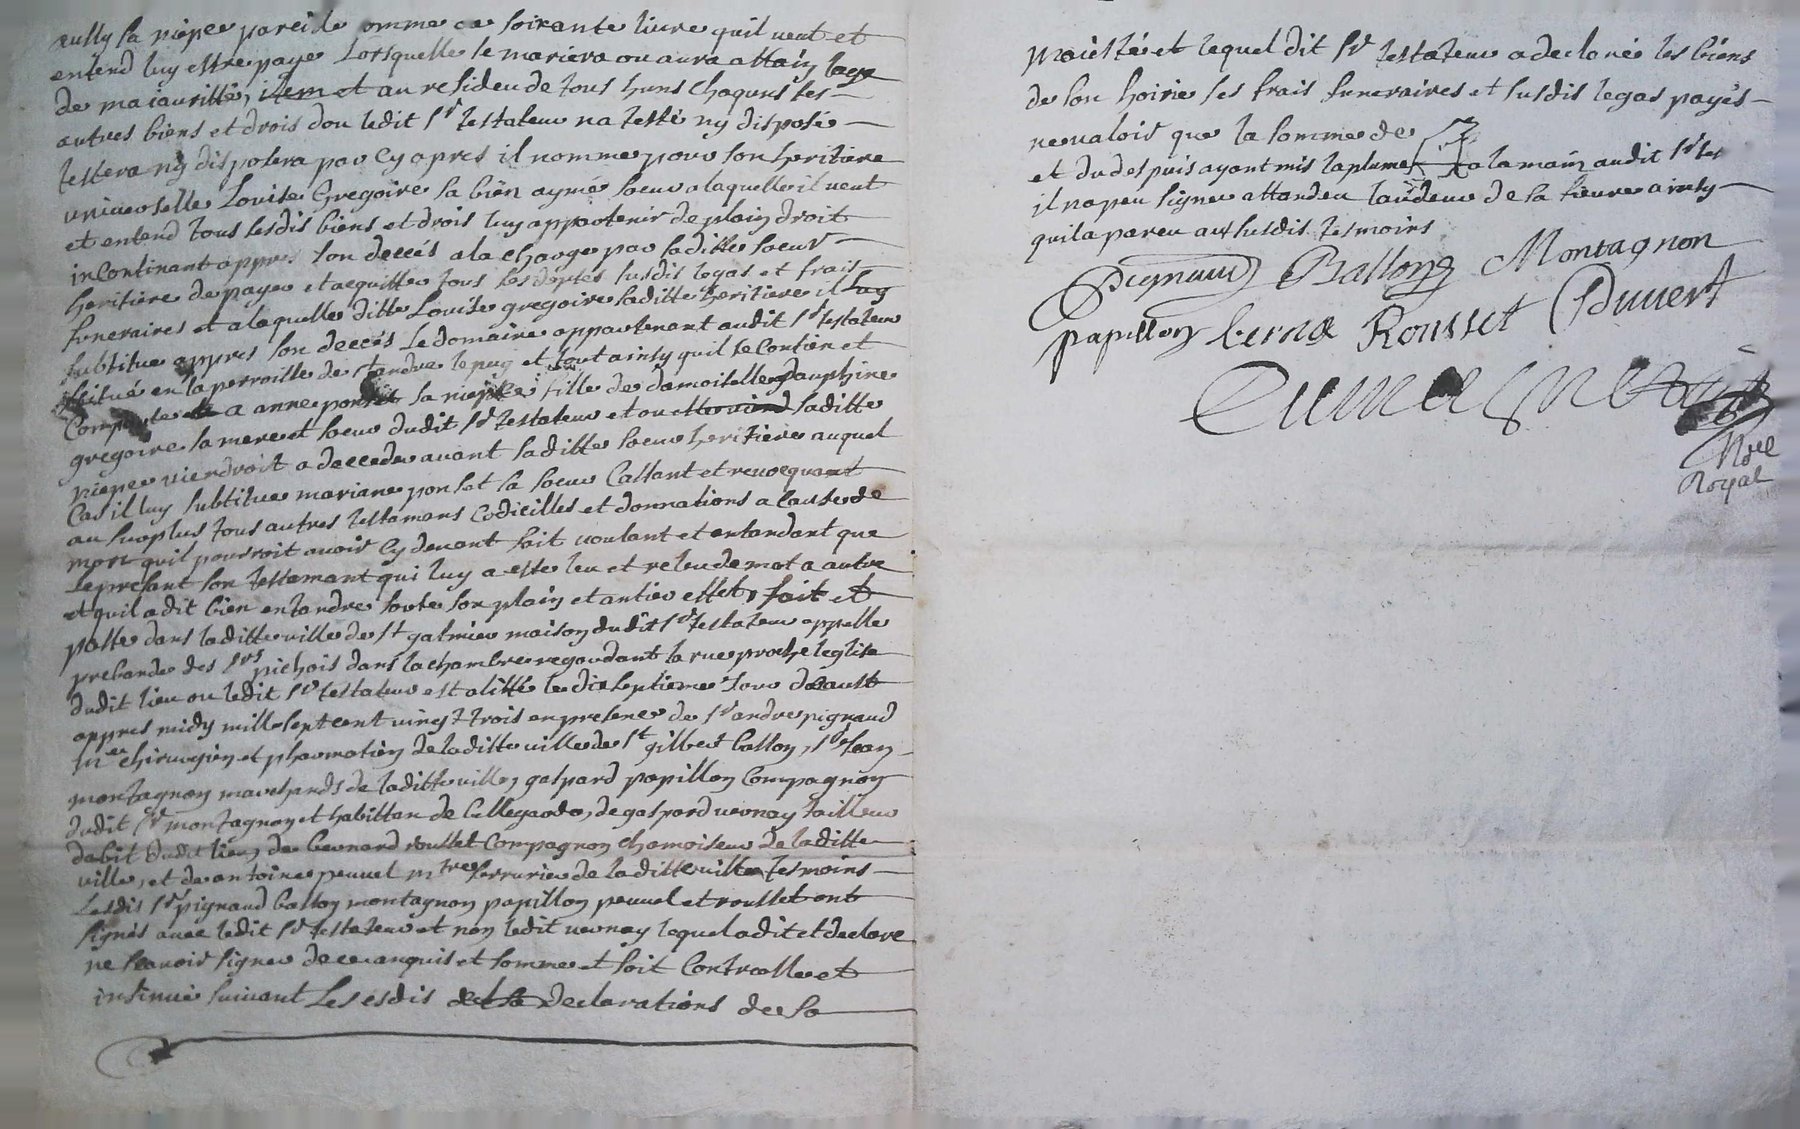 aussy sa niepce pareille somme de soixante livre quil veut et
entend luy estre paye Lorsquelle se mariera ou aura attain lage
de maiauritté, item et au resideu de tous huns chaquns ses
autres biens et drois dou ledit Sr testateur na testé ny disposé
testera ny disposera par cy apres il nomme pour son heritiere
universelle Louise Gregoire sa bien aymé soeur a laquelle il veut
et entend tous lesdis biens et drois luy appartenir de plain droit
incontinant appres son deccés a la charge par saditte soeur
heritiere de payer et acquitter tous les deptes susdis legas et frais
funeraires et a laquelle ditte Louise gregoire saditte heritiere il luy
subtitue appres son deccés Le domaine appartenant audit Sr testateur
scitué en la parroille de st andre le puy et tout ainsy quil se contien et
Comporte a anne ponset sa niepce fille de damoiselle dauphine
gregoire sa mere et soeur dudit Sr testateur et ou saditte
niepce viendroit a decceder avant saditte soeur heritiere auquel
Cas il luy subtitue mariane ponset sa soeur Cassant et revocquant
au surplus tous autres testamens Codicilles et donnations a Cause de
mort quil pourroit avoir cy devant fait voulant et entandant que
le presant son testamant qui luy a esté leu et releu de mot a autre
et quil a dit bien entandre sorte son plain et antier effet, fait et
passé dans laditte ville de St galmier maison dudit Sr testateur appellé
prebande des Srs pichois dans la chambre regardant la rue proche leglise
dudit lieu ou ledit Sr testateur est alitté le dix septieme Jour daaust
appres midy mille sept cent vingt trois en presence de Sr andre pignaud
me chirurgien et pharmatien de laditte ville de St gilbert ballon, Sr Jean
montagnon marchands de laditte ville, gaspard papillon Compagnon
dudit Sr montagnon et habittan de bellegarde, de gaspard vernay tailleur
dabit dudit lieu, de bernard rousset Compagnon chamoiseur de laditte
ville, et de antoine peuvel mtre serrurier de laditte ville tesmoins
Lesdis Sr pignaud ballon montagnon papillon peuvel et rousset ont
signés avec ledit Sr testateur et non ledit vernay lequel a dit et declare
ne scavoir signer de ce anquis et sommé et soit Controllé et
insinué suivant Les esdis declarations de sa
maiesté et lequel dit Sr testateur a declaré les biens
de son hoirie ses frais funeraires et susdis legas payés
ne valoir que la somme de
et du despuis ayant mis la plume a la main audit Sr tes
il na peu signer attandeu lardeur de sa fievre ainsy
quil a pareu aux susdis tesmoins
Pignaud Ballon Montagnon
papillon bernar Rousset
Nore
Royal